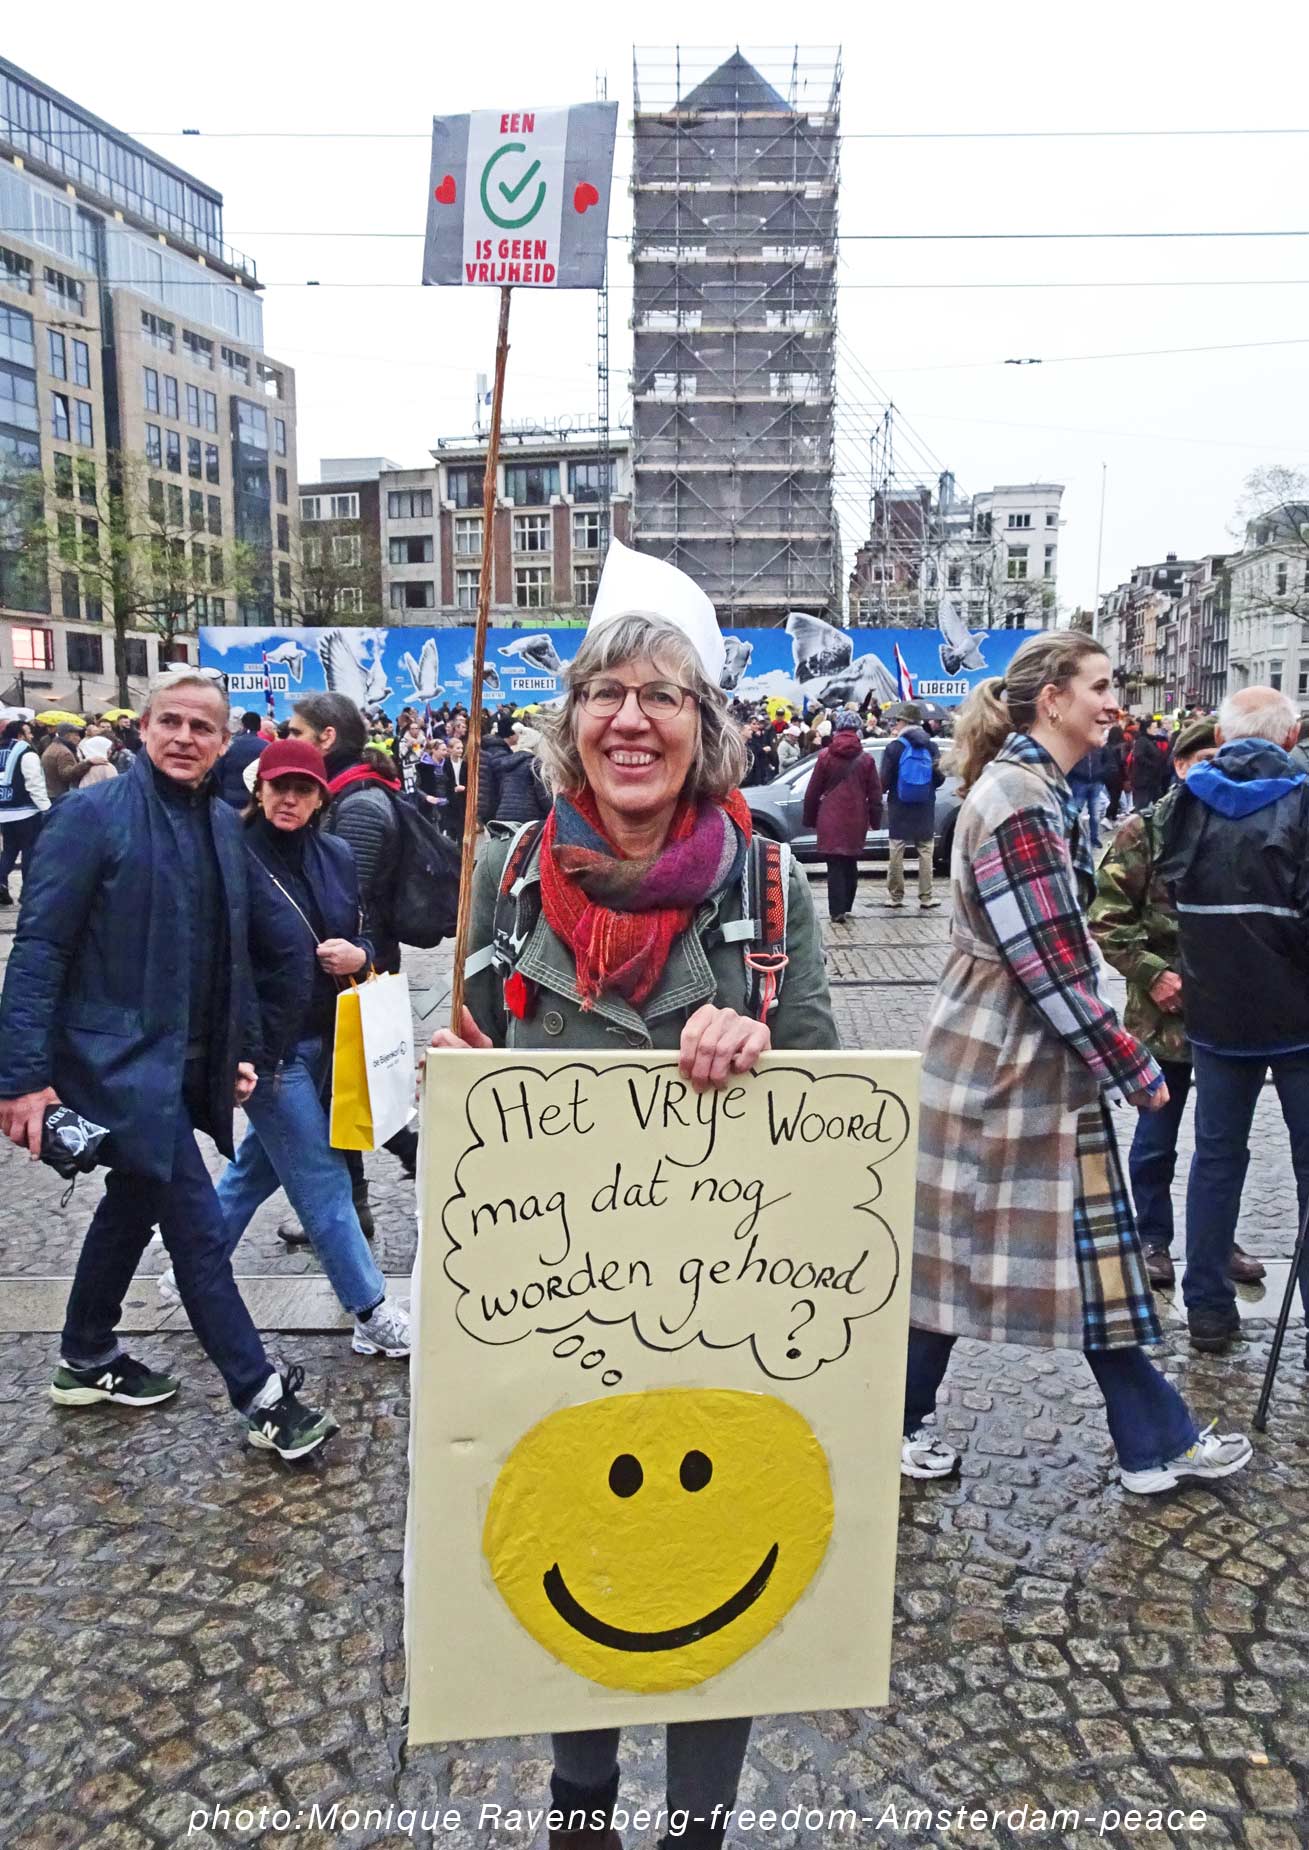 EEN
IS GEEN
VRIJHEID
GRAND HOTEL K
RIJHEID
FREIHEIT
LIBERTÉ
de Bijenkorf
Het VRije Woord
mag dat nog
worden gehoord
?
N
N
photo:Monique Ravensberg-freedom-Amsterdam-peace